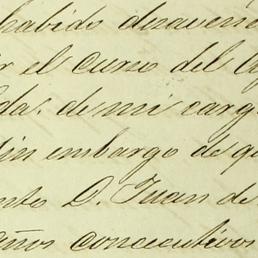 habido desavene
ir el curso del A
da. de mi carg
sin embargo de q
nto D. Juan de
años concecutivos